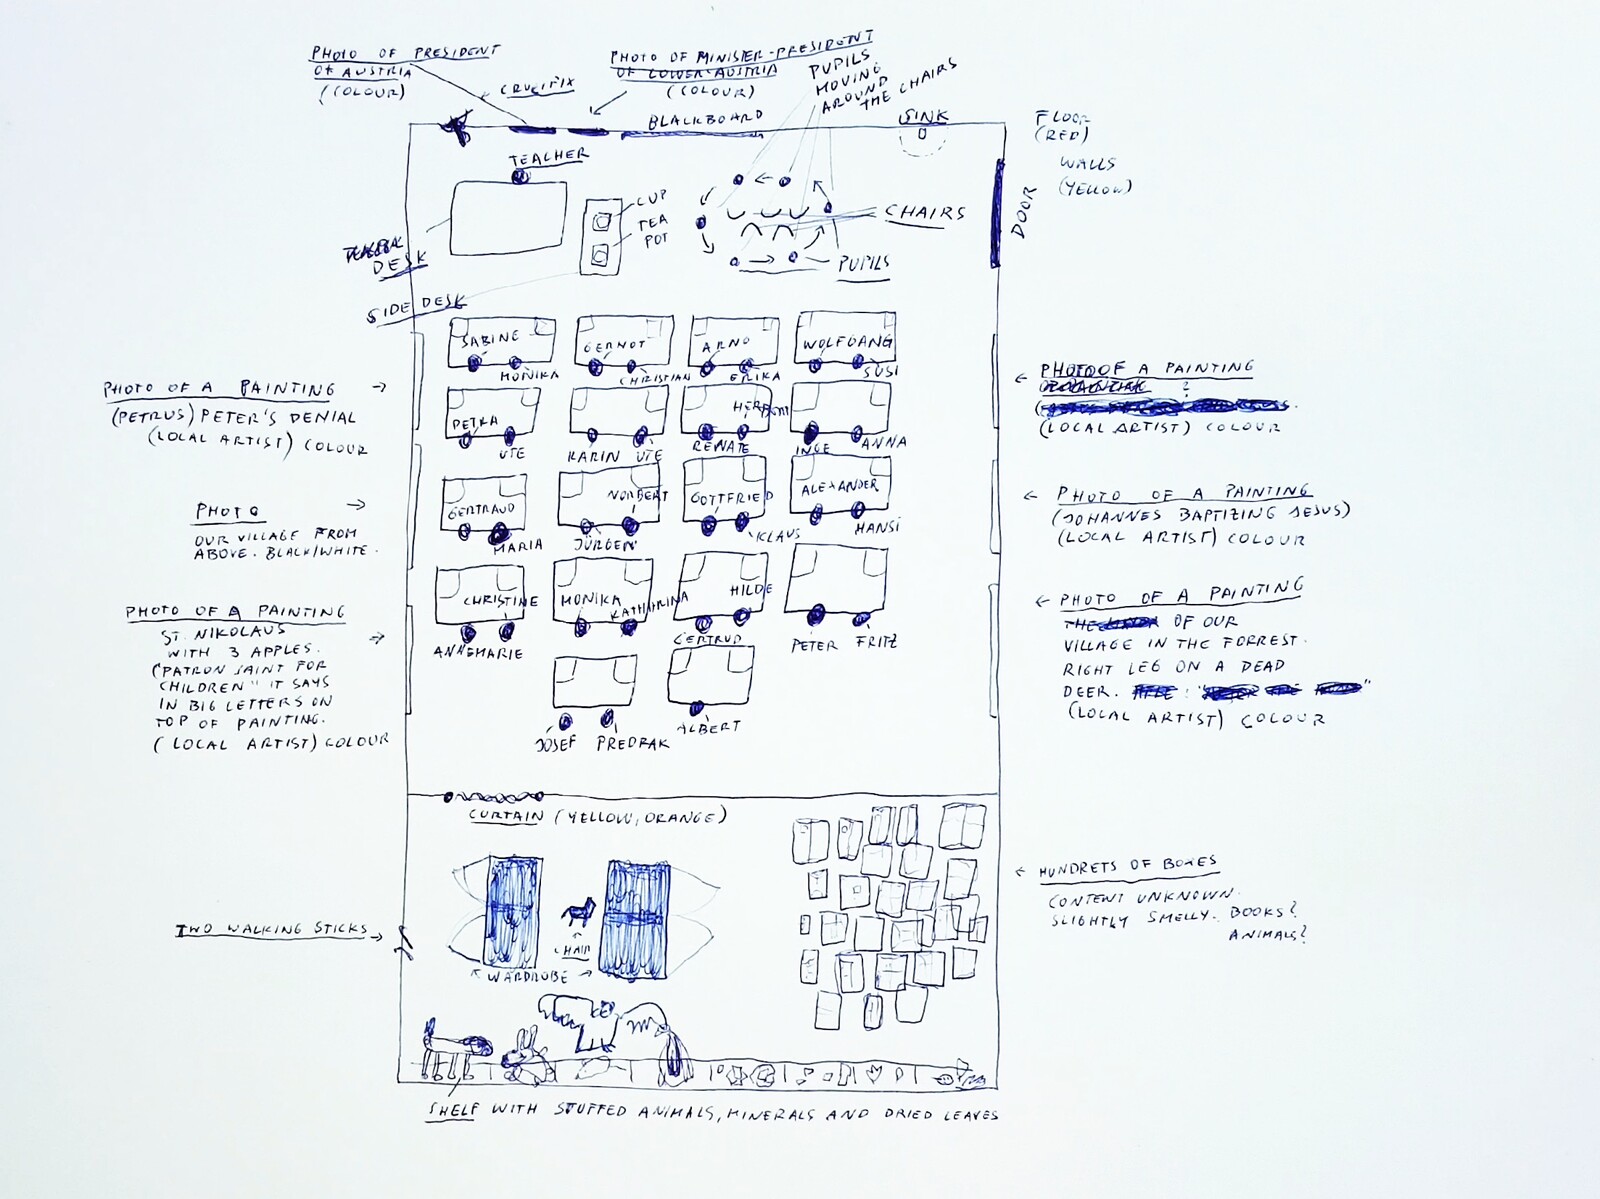 PHOTO OF PRESIDENT
OF AUSTRIA
(COLOUR)
CRUCIFIX
PHOTO OF MINISTER-PRESIDENT
OF LOWER-AUSTRIA
(COLOUR)
PUPILS
MOVING
AROUND
THE CHAIRS
BLACKBOARD
SINK
FLOOR
(RED)
WALLS
(YELLOW)
DOOR
TEACHER
CUP
TEA
POT
CHAIRS
PUPILS
DESK
SIDE DESK
SABINE
MONIKA
GERNOT
CHRISTIAN
ARNO
ERIKA
WOLFGANG
SUSI
PETRA
UTE
KARIN UTE
HERBERT
RENATE
INGE
ANNA
GERTRAUD
MARIA
NORBERT
JÜRGEN
GOTTFRIED
KLAUS
ALEXANDER
HANSI
CHRISTINE
ANNEMARIE
MONIKA
KATHARINA
HILDE
GERTRUD
PETER FRITZ
JOSEF PREDRAK
ALBERT
PHOTO OF A PAINTING
(PETRUS) PETER'S DENIAL
(LOCAL ARTIST) COLOUR
PHOTO
OUR VILLAGE FROM
ABOVE. BLACK/WHITE.
PHOTO OF A PAINTING
ST. NIKOLAUS
WITH 3 APPLES.
(PATRON SAINT FOR
CHILDREN" IT SAYS
IN BIG LETTERS ON
TOP OF PAINTING.
(LOCAL ARTIST) COLOUR
PHOTO OF A PAINTING
?
(LOCAL ARTIST) COLOUR
PHOTO OF A PAINTING
(JOHANNES BAPTIZING JESUS)
(LOCAL ARTIST) COLOUR
PHOTO OF A PAINTING
OF OUR
VILLAGE IN THE FORREST.
RIGHT LEG ON A DEAD
DEER.
(LOCAL ARTIST) COLOUR
CURTAIN (YELLOW, ORANGE)
HUNDRETS OF BOXES
CONTENT UNKNOWN.
SLIGHTLY SMELLY. BOOKS?
ANIMALS?
TWO WALKING STICKS
CHAIR
WARDROBE
SHELF WITH STUFFED ANIMALS, MINERALS AND DRIED LEAVES